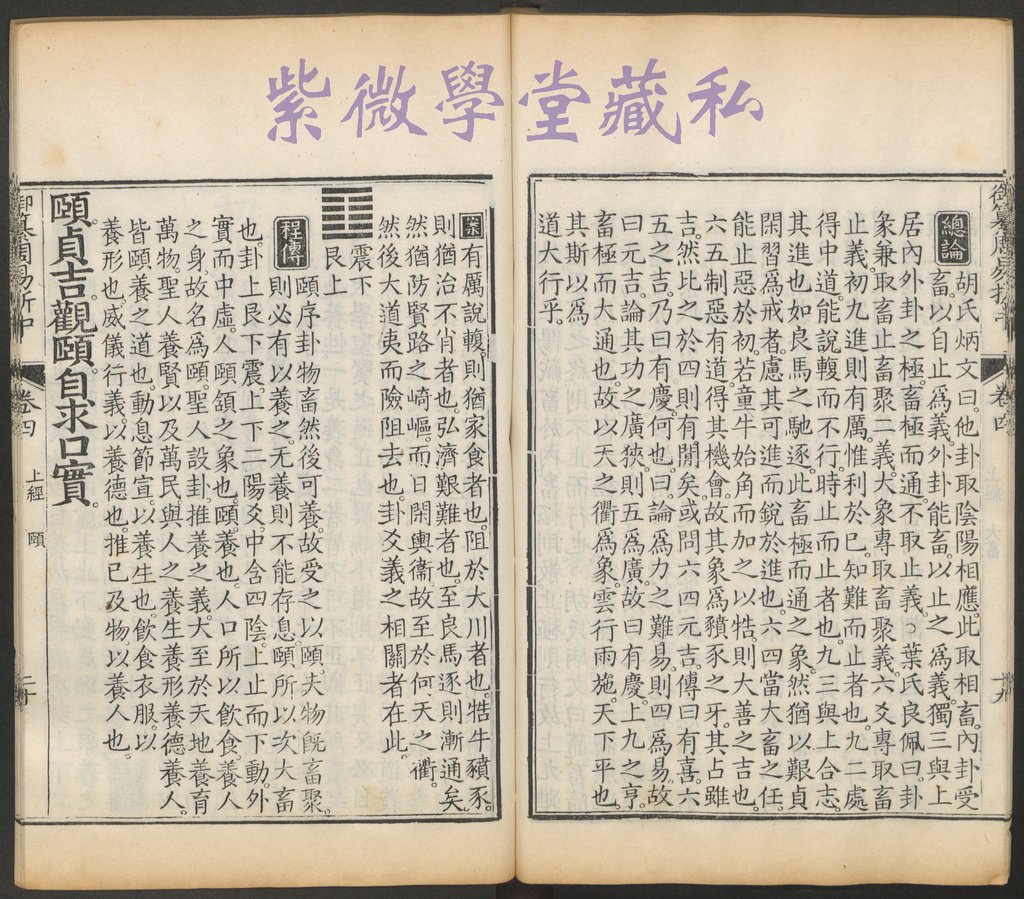 紫微學堂藏私
總論
胡氏炳文曰。他卦取陰陽相應。此取相畜。內卦受
畜。以自止爲義。外卦能畜。以止之爲義。獨三與上
居內外卦之極。畜極而通。不取止義。葉氏良佩曰。卦
象兼取畜止畜聚二義。大象專取畜聚義。六爻專取畜
止義。初九進則有厲。惟利於已。知難而止者也。九二處
得中道。能說輹而不行。時止而止者也。九三與上合志。
其進也如良馬之馳逐。此畜極而通之象。然猶以艱貞
閑習爲戒者。慮其可進而銳於進也。六四當大畜之任。
能止惡於初。若童牛始角而加之以牿。則大善之吉也。
六五制惡有道。得其機會。故其象爲豶豕之牙。其占雖
吉。然比之於四則有閒矣。或問六四元吉。傳曰有喜。六
五之吉。乃曰有慶。何也。曰。論爲力之難易。則四爲易。故
曰元吉。論其功之廣狹。則五爲廣。故曰有慶。上九之亨。
畜極而大通也。故以天之衢爲象。雲行雨施。天下平也。
其斯以爲
道大行乎。
御纂周易折中
卷四
十九
案
有厲說輹。則猶家食者也。阻於大川者也。牿牛豶豕。
則猶治不肖者也。弘濟艱難者也。至良馬逐則漸通矣。
然猶防賢路之崎嶇。而日閑輿衞。故至於何天之衢。
然後大道夷而險阻去也。卦爻義之相關者在此。
震下
艮上
程傳
頤序卦物畜然後可養。故受之以頤。夫物旣畜聚。
則必有以養之。无養則不能存息。頤所以次大畜
也。卦上艮下震。上下二陽爻。中含四陰。上止而下動。外
實而中虛。人頤頷之象也。頤養也。人口所以飮食養人
之身。故名爲頤。聖人設卦。推養之義。大至於天地養育
萬物。聖人養賢以及萬民。與人之養生養形養德養人。
皆頤養之道也。動息節宣。以養生也。飮食衣服。以
養形也。威儀行義。以養德也。推已及物。以養人也。
頤貞吉。觀頤自求口實。
御纂周易折中
卷四
上經
頤
二十